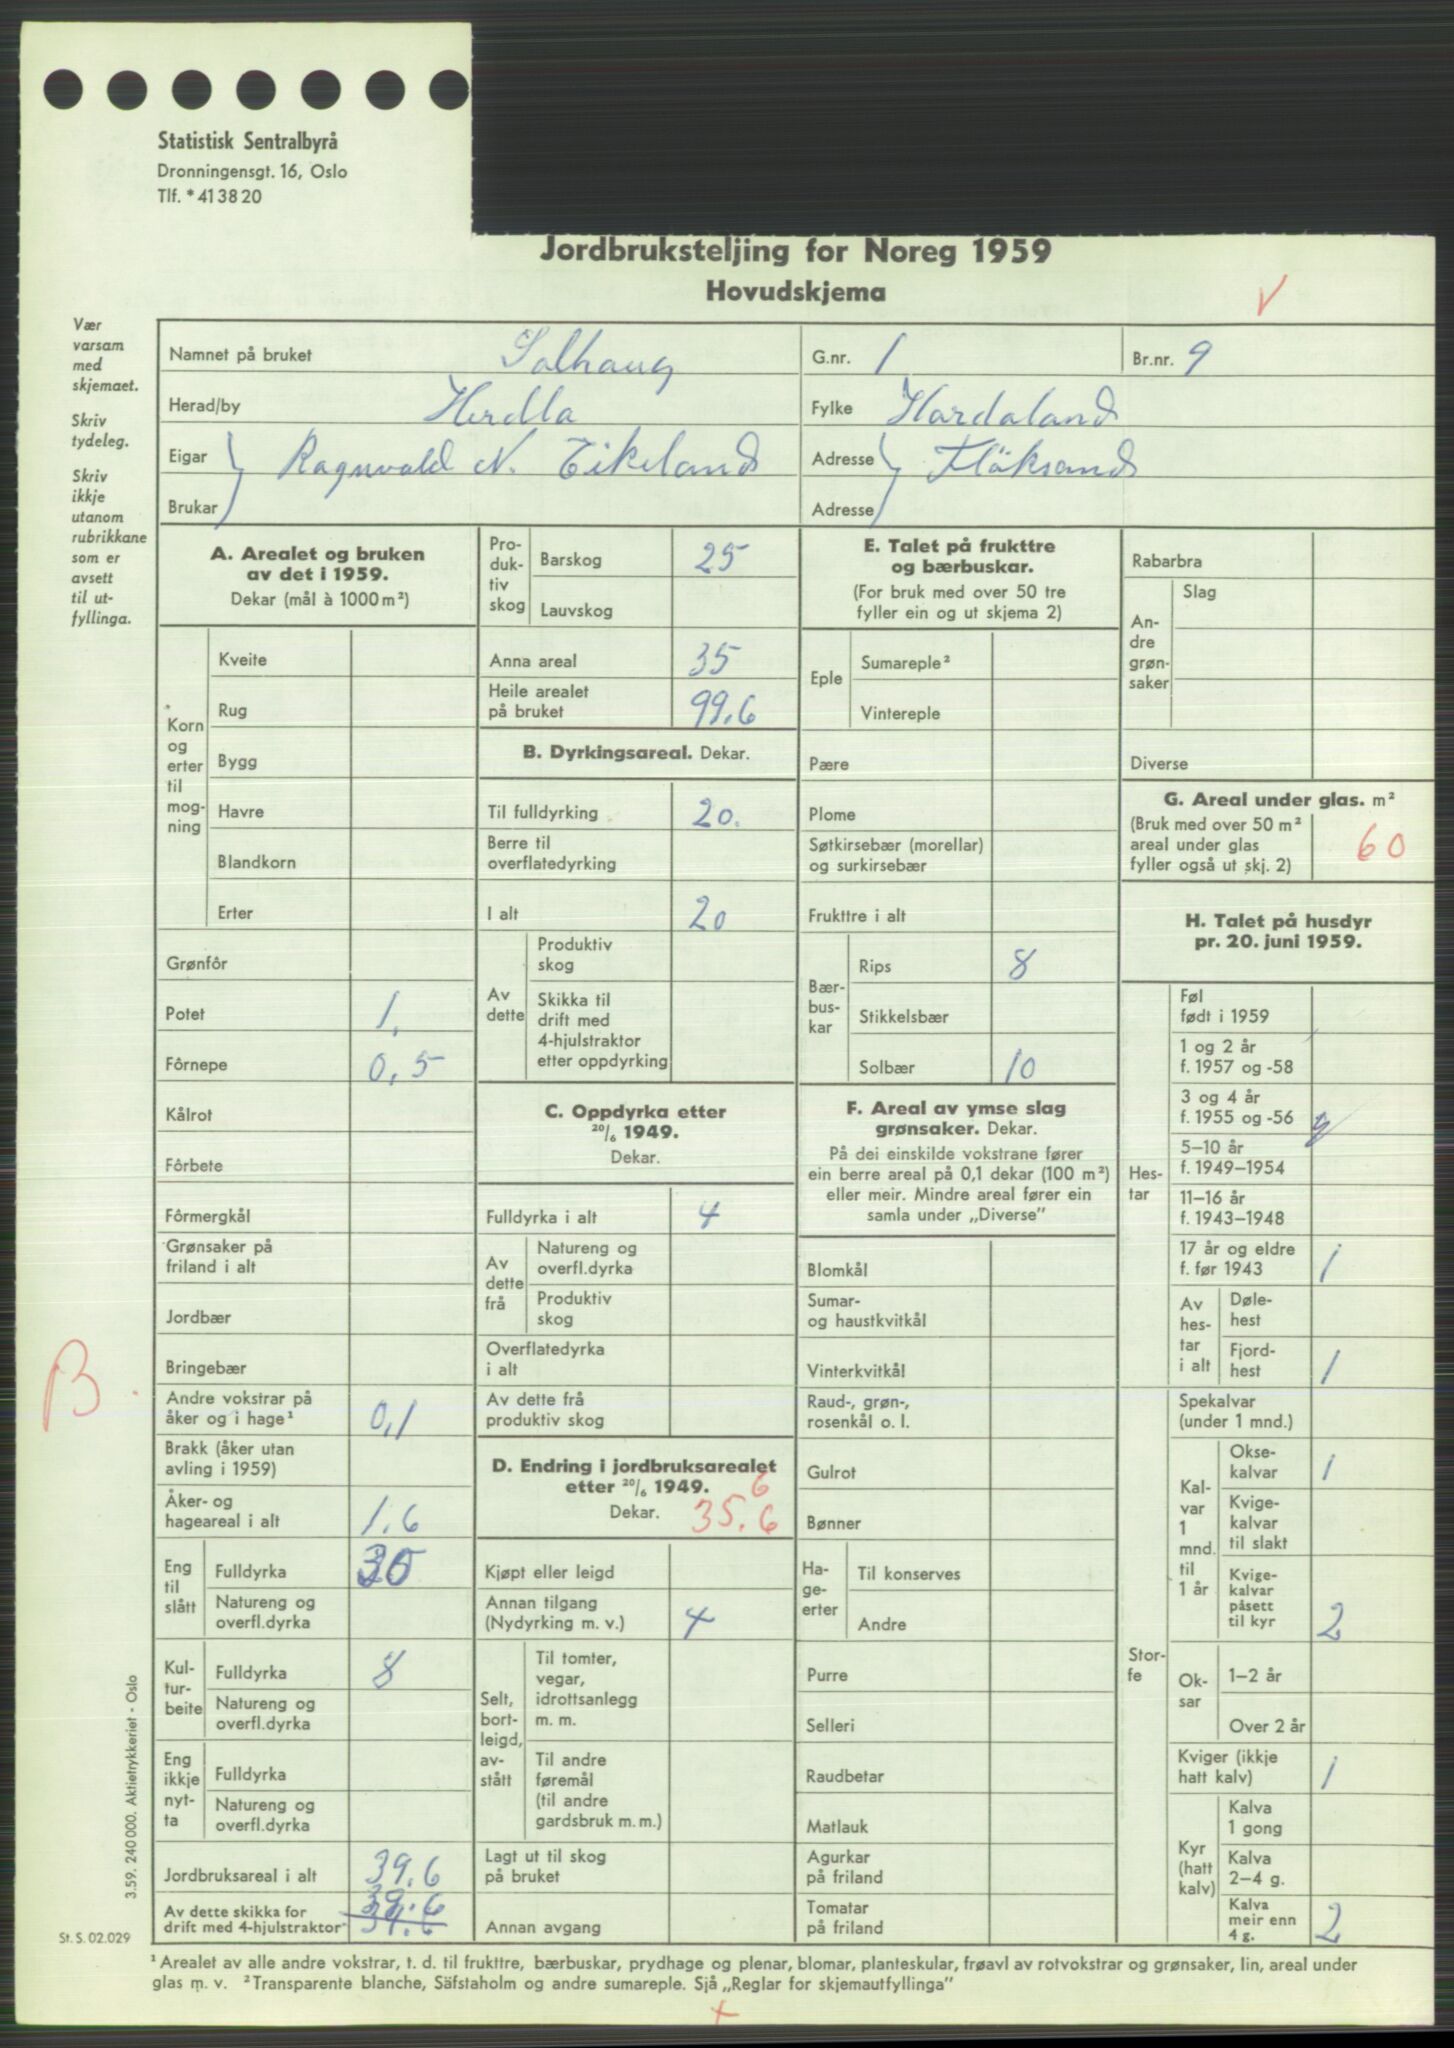 Statistisk Sentralbyrå
Dronningensgt. 16, Oslo
Tlf. * 41 38 20
Jordbruksteljing for Noreg 1959
Hovudskjema
V
Vær
varsam
med
skjemaet.
Skriv
tydeleg.
Skriv
ikkje
utanom
rubrikkane
som er
avsett
til ut-
fyllinga.
Namnet på bruket Solhaug G.nr. 1 Br.nr. 9
Herad/by Herdla Fylke Hordaland
Eigar Ragnvald N. Eikeland Adresse Fløksand
Brukar Adresse
A. Arealet og bruken
av det i 1959.
Dekar (mål à 1000 m²)
Korn
og
erter
til
mog-
ning
Kveite
Rug
Bygg
Havre
Blandkorn
Erter
Grønfôr
Potet 1.
Fôrnepe 0,5
Kålrot
Fôrbete
Fôrmergkål
Grønsaker på
friland i alt
Jordbær
Bringebær
Andre vokstrar på
åker og i hage¹ 0,1
Brakk (åker utan
avling i 1959)
Åker- og
hageareal i alt 1.6
Eng
til
slått
Fulldyrka 30
Natureng og
overfl.dyrka
Kul-
tur-
beite
Fulldyrka 8
Natureng og
overfl.dyrka
Eng
ikkje
nyt-
ta
Fulldyrka
Natureng og
overfl.dyrka
Jordbruksareal i alt 39.6
Av dette skikka for
drift med 4-hjulstraktor 39.6
B.
Pro-
duk-
tiv
skog
Barskog 25
Lauvskog
Anna areal 35
Heile arealet
på bruket 99.6
B. Dyrkingsareal. Dekar.
Til fulldyrking 20.
Berre til
overflatedyrking
I alt 20
Av
dette
Produktiv
skog
Skikka til
drift med
4-hjulstraktor
etter oppdyrking
C. Oppdyrka etter
20/6 1949.
Dekar.
Fulldyrka i alt 4
Av
dette
frå
Natureng og
overfl.dyrka
Produktiv
skog
Overflatedyrka
i alt
Av dette frå
produktiv skog
D. Endring i jordbruksarealet
etter 20/6 1949.
Dekar. 35.6
6
Kjøpt eller leigd
Annan tilgang
(Nydyrking m. v.) 4
Selt,
bort-
leigd,
av-
stått
Til tomter,
vegar,
idrottsanlegg
m. m.
Til andre
føremål
(til andre
gardsbruk m. m.)
Lagt ut til skog
på bruket
Annan avgang
E. Talet på frukttre
og bærbuskar.
(For bruk med over 50 tre
fyller ein og ut skjema 2)
Eple
Sumareple²
Vintereple
Pære
Plome
Søtkirsebær (morellar)
og surkirsebær
Frukttre i alt
Bær-
bus-
kar
Rips 8
Stikkelsbær
Solbær 10
F. Areal av ymse slag
grønsaker. Dekar.
På dei einskilde vokstrane fører
ein berre areal på 0,1 dekar (100 m²)
eller meir. Mindre areal fører ein
samla under „Diverse”
Blomkål
Sumar-
og haustkvitkål
Vinterkvitkål
Raud-, grøn-,
rosenkål o. l.
Gulrot
Bønner
Ha-
ge-
erter
Til konserves
Andre
Purre
Selleri
Raudbetar
Matlauk
Agurkar
på friland
Tomatar
på friland
Rabarbra
An-
dre
grøn-
saker
Slag
Diverse
G. Areal under glas. m²
(Bruk med over 50 m²
areal under glas
fyller også ut skj. 2) 60
H. Talet på husdyr
pr. 20. juni 1959.
Hes-
tar
Føl
født i 1959
1 og 2 år
f. 1957 og -58
3 og 4 år
f. 1955 og -56
5–10 år
f. 1949–1954
11–16 år
f. 1943–1948
17 år og eldre
f. før 1943 1
Av
hes-
tar
i alt
Døle-
hest
Fjord-
hest 1
Stor-
fe
Spekalvar
(under 1 mnd.)
Kal-
var
1
mnd.
til
1 år
Okse-
kalvar 1
Kvige-
kalvar
til slakt
Kvige-
kalvar
påsett
til kyr 2
Ok-
sar
1–2 år
Over 2 år
Kviger (ikkje
hatt kalv) 1
Kyr
(hatt
kalv)
Kalva
1 gong
Kalva
2–4 g.
Kalva
meir enn
4 g. 2
3.59. 240 000. Aktietrykkeriet - Oslo
St. S. 02.029
¹ Arealet av alle andre vokstrar, t. d. til frukttre, bærbuskar, prydhage og plenar, blomar, planteskular, frøavl av rotvokstrar og grønsaker, lin, areal under
glas m. v. ² Transparente blanche, Säfstaholm og andre sumareple. Sjå „Reglar for skjemautfyllinga”